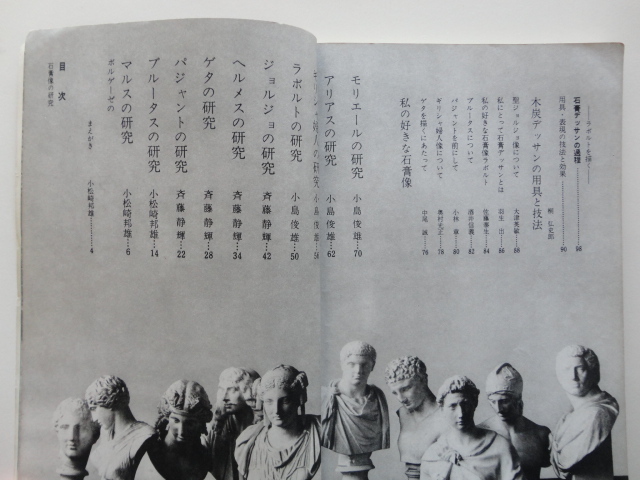 目次
石膏像の研究
まえがき 小松崎邦雄…4
ボルゲーゼの
マルスの研究 小松崎邦雄…6
ブルータスの研究 小松崎邦雄…14
パジャントの研究 斉藤静輝…22
ゲタの研究 斉藤静輝…28
ヘルメスの研究 斉藤静輝…34
ジョルジョの研究 斉藤静輝…42
ラボルトの研究 小島俊雄…50
の研究 小島俊雄
アリアスの研究 小島俊雄…62
モリエールの研究 小島俊雄…70
私の好きな石膏像
ゲタを描くにあたって 中尾 誠…76
ギリシャ婦人像について 奥村光正…78
パジャントを前にして 小林 …80
ブルータスについて 酒井信義…82
私の好きな石膏像ラボルト 佐藤泰生…84
私にとって石膏デッサンとは 羽生 出…86
聖ジョルジョ像について 大津英敏…88
木炭デッサンの用具と技法
用具・表現の技法と効果…90
石膏デッサンの過程…98
——ラボルトを描く——